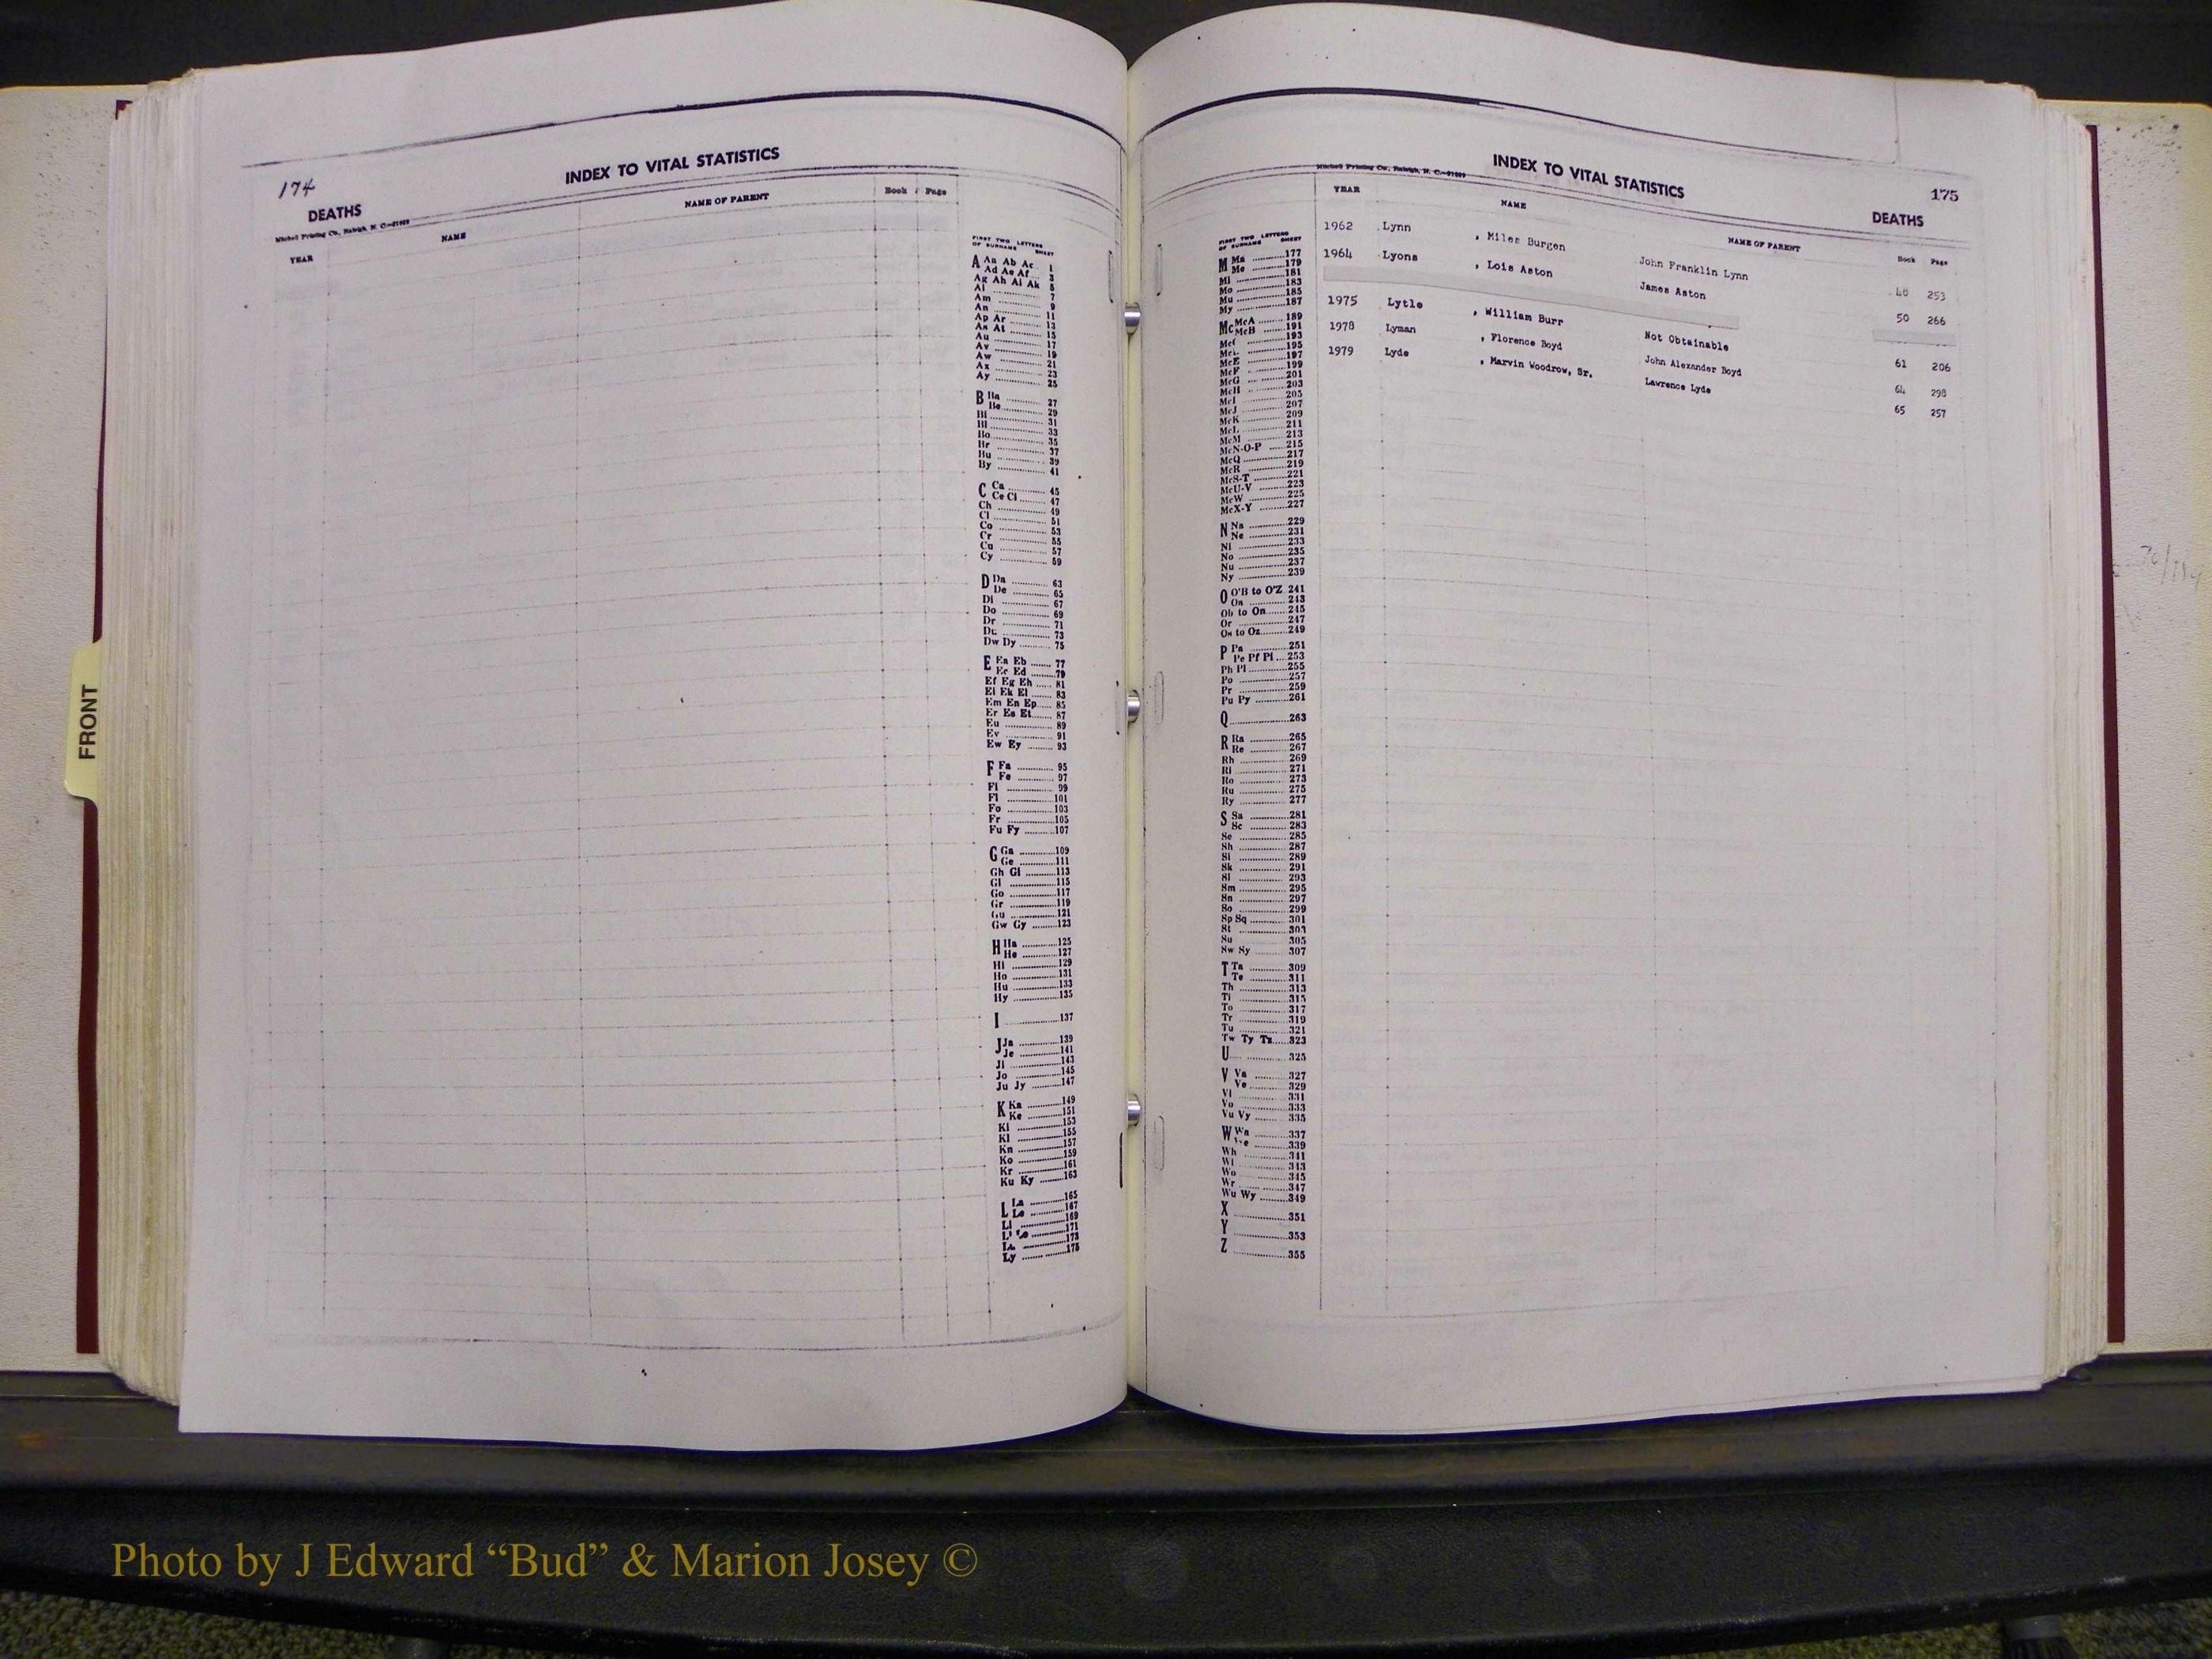 174
INDEX TO VITAL STATISTICS
DEATHS
Mitchell Printing Co., Raleigh, N. C.
YEAR NAME NAME OF PARENT Book Page
FIRST TWO LETTERS OF SURNAME SHEET
A Aa Ab Ac 1
Ad Ae Af 3
Ag Ah Ai Ak 5
Al 7
Am 9
An 11
Ap Ar 13
As At 15
Au 17
Av 19
Aw 21
Ax 23
Ay 25
B Ba 27
Be 29
Bi 31
Bl 33
Bo 35
Br 37
Bu 39
By 41
C Ca 45
Ce Ci 47
Ch 49
Cl 51
Co 53
Cr 55
Cu 57
Cy 59
D Da 63
De 65
Di 67
Do 69
Dr 71
Du 73
Dw Dy 75
E Ea Eb 77
Ec Ed 79
Ef Eg Eh 81
Ei Ek El 83
Em En Ep 85
Er Es Et 87
Eu 89
Ev 91
Ew Ey 93
F Fa 95
Fe 97
Fi 99
Fl 101
Fo 103
Fr 105
Fu Fy 107
G Ga 109
Ge 111
Gh Gi 113
Gl 115
Go 117
Gr 119
Gu 121
Gw Gy 123
H Ha 125
He 127
Hi 129
Ho 131
Hu 133
Hy 135
I 137
J Ja 139
Je 141
Ji 143
Jo 145
Ju Jy 147
K Ka 149
Ke 151
Ki 153
Kl 155
Kn 157
Ko 159
Kr 161
Ku Ky 163
L La 165
Le 167
Li 169
Lo 171
Lu 173
Ly 175
INDEX TO VITAL STATISTICS
175
Mitchell Printing Co., Raleigh, N. C.
DEATHS
YEAR NAME NAME OF PARENT Book Page
1962 Lynn , Miles Burgen John Franklin Lynn 48 253
1964 Lyons , Lois Aston James Aston 50 266
1975 Lytle , William Burr Not Obtainable 61 206
1978 Lyman , Florence Boyd John Alexander Boyd 64 298
1979 Lyde , Marvin Woodrow, Sr. Lawrence Lyde 65 257
FIRST TWO LETTERS OF SURNAME SHEET
M Ma 177
Me 179
Mi 181
Mo 183
Mu 185
My 187
Mc McA 189
McB 191
McC 193
McD 195
McE 197
McF 199
McG 201
McH 203
McI 205
McJ 207
McK 209
McL 211
McM 213
McN-O-P 215
McQ 217
McR 219
McS-T 221
McU-V 223
McW 225
McX-Y 227
N Na 229
Ne 231
Ni 233
No 235
Nu 237
Ny 239
O O'B to O'Z 241
Oa 243
Ob to On 245
Or 247
Os to Oz 249
P Pa 251
Pe Pf Pi 253
Ph Pl 255
Po 257
Pr 259
Pu Py 261
Q 263
R Ra 265
Re 267
Rh 269
Ri 271
Ro 273
Ru 275
Ry 277
S Sa 281
Sc 283
Se 285
Sh 287
Si 289
Sk 291
Sl 293
Sm 295
Sn 297
So 299
Sp Sq 301
St 303
Su 305
Sw Sy 307
T Ta 309
Te 311
Th 313
Ti 315
To 317
Tr 319
Tu 321
Tw Ty Tz 323
U 325
V Va 327
Ve 329
Vi 331
Vo 333
Vu Vy 335
W Wa 337
We 339
Wh 341
Wi 343
Wo 345
Wr 347
Wu Wy 349
X 351
Y 353
Z 355
FRONT
Photo by J Edward “Bud” & Marion Josey ©